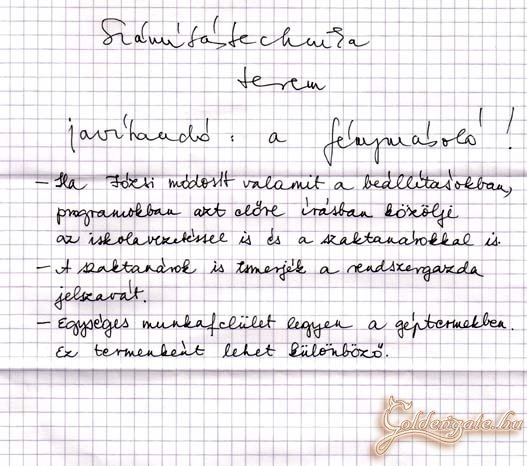 Számítástechnika
terem
javítandó: a fénymásoló!
- Ha Józsi módosít valamit a beállításokban,
programokban azt előre írásban közölje
az iskolavezetéssel is és a szaktanárokkal is.
- A szaktanárok is ismerjék a rendszergazda
jelszavát.
- Egységes munkafelület legyen a géptermekben.
Ez termenként lehet különböző.
Goldengate.hu